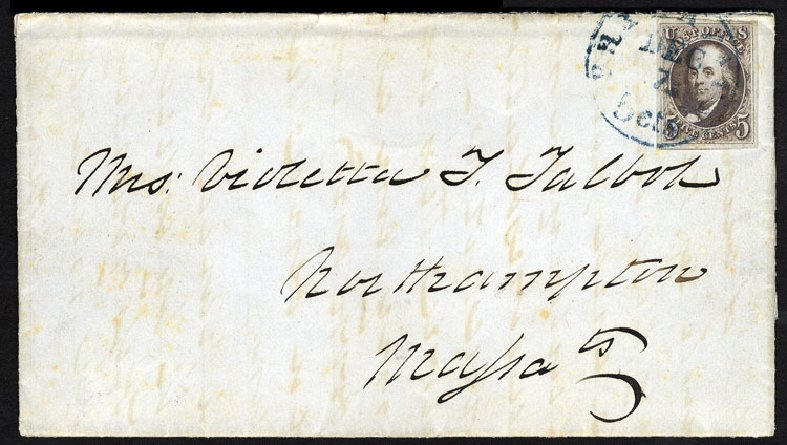 U S
POST OFFICE
5 FIVE CENTS 5
DEC
Mrs. Violetta T. Talbot
Northampton
Massa ts